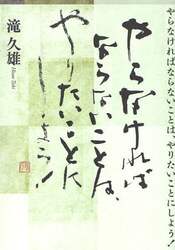 やらなければならないことは、やりたいことにしよう!
やらなければ
ならないことは、
やりたいことに
しよう!
滝 久雄
Hisao Taki